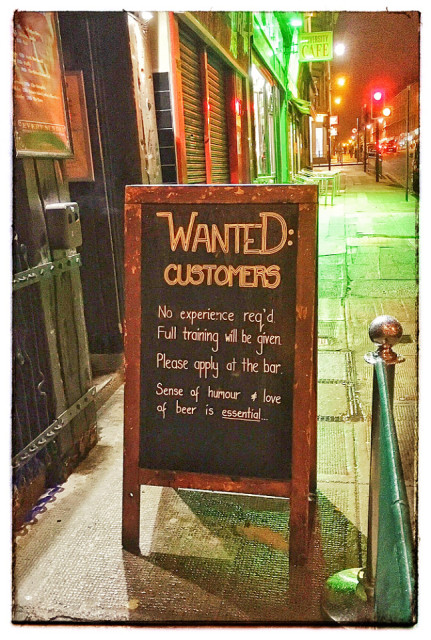 CAFE
WANTED:
CUSTOMERS
No experience req'd.
Full training will be given.
Please apply at the bar.
Sense of humour & love
of beer is essential...